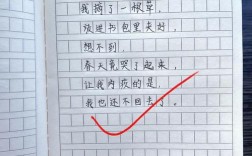 我摘了一根草，
放进书包里夹好，
想不到，
春天竟哭了起来，
让我内疚的是，
我也还不回去了。